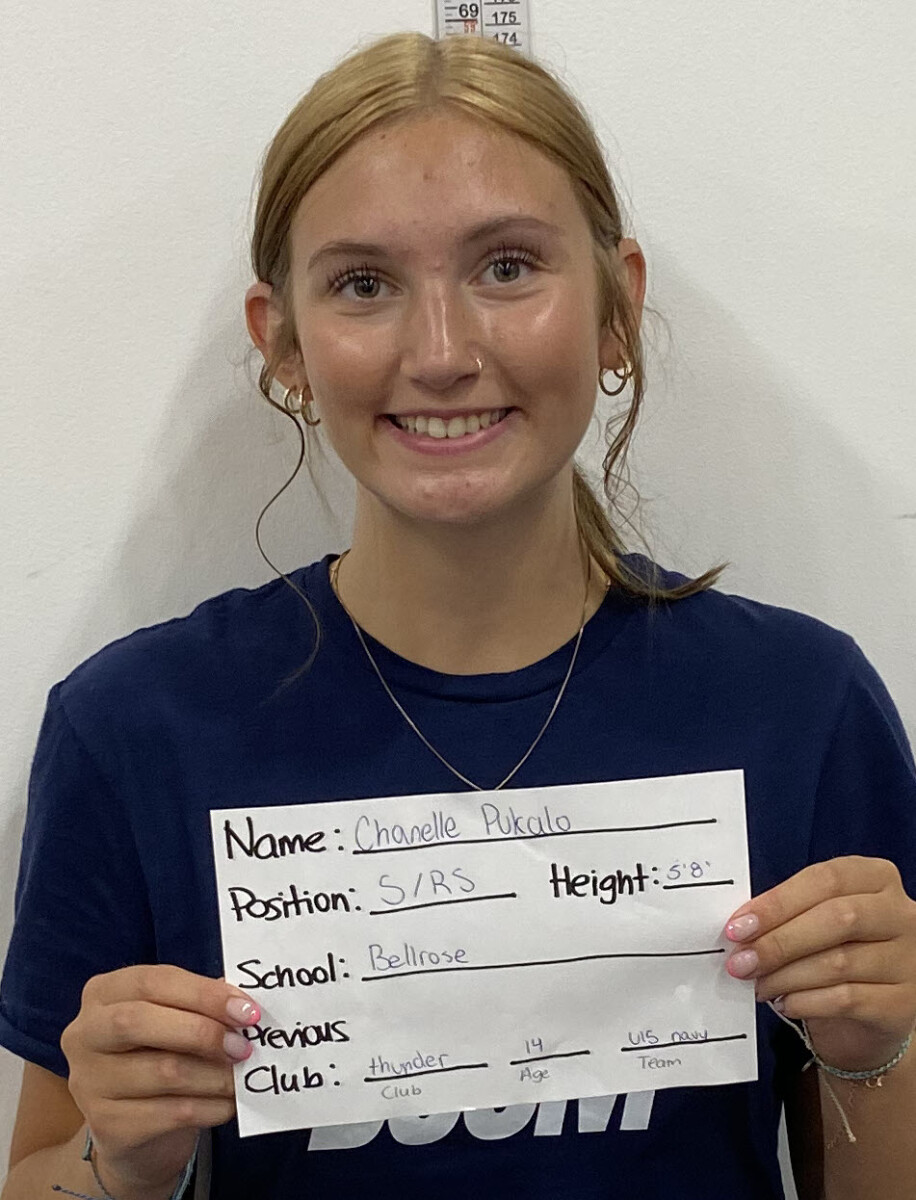 69
175
174
Name: Chanelle Pukalo
Position: S/RS Height: 5'8'
School: Bellrose
Previous
Club: thunder 14 U15 navy
Club Age Team
BOOM